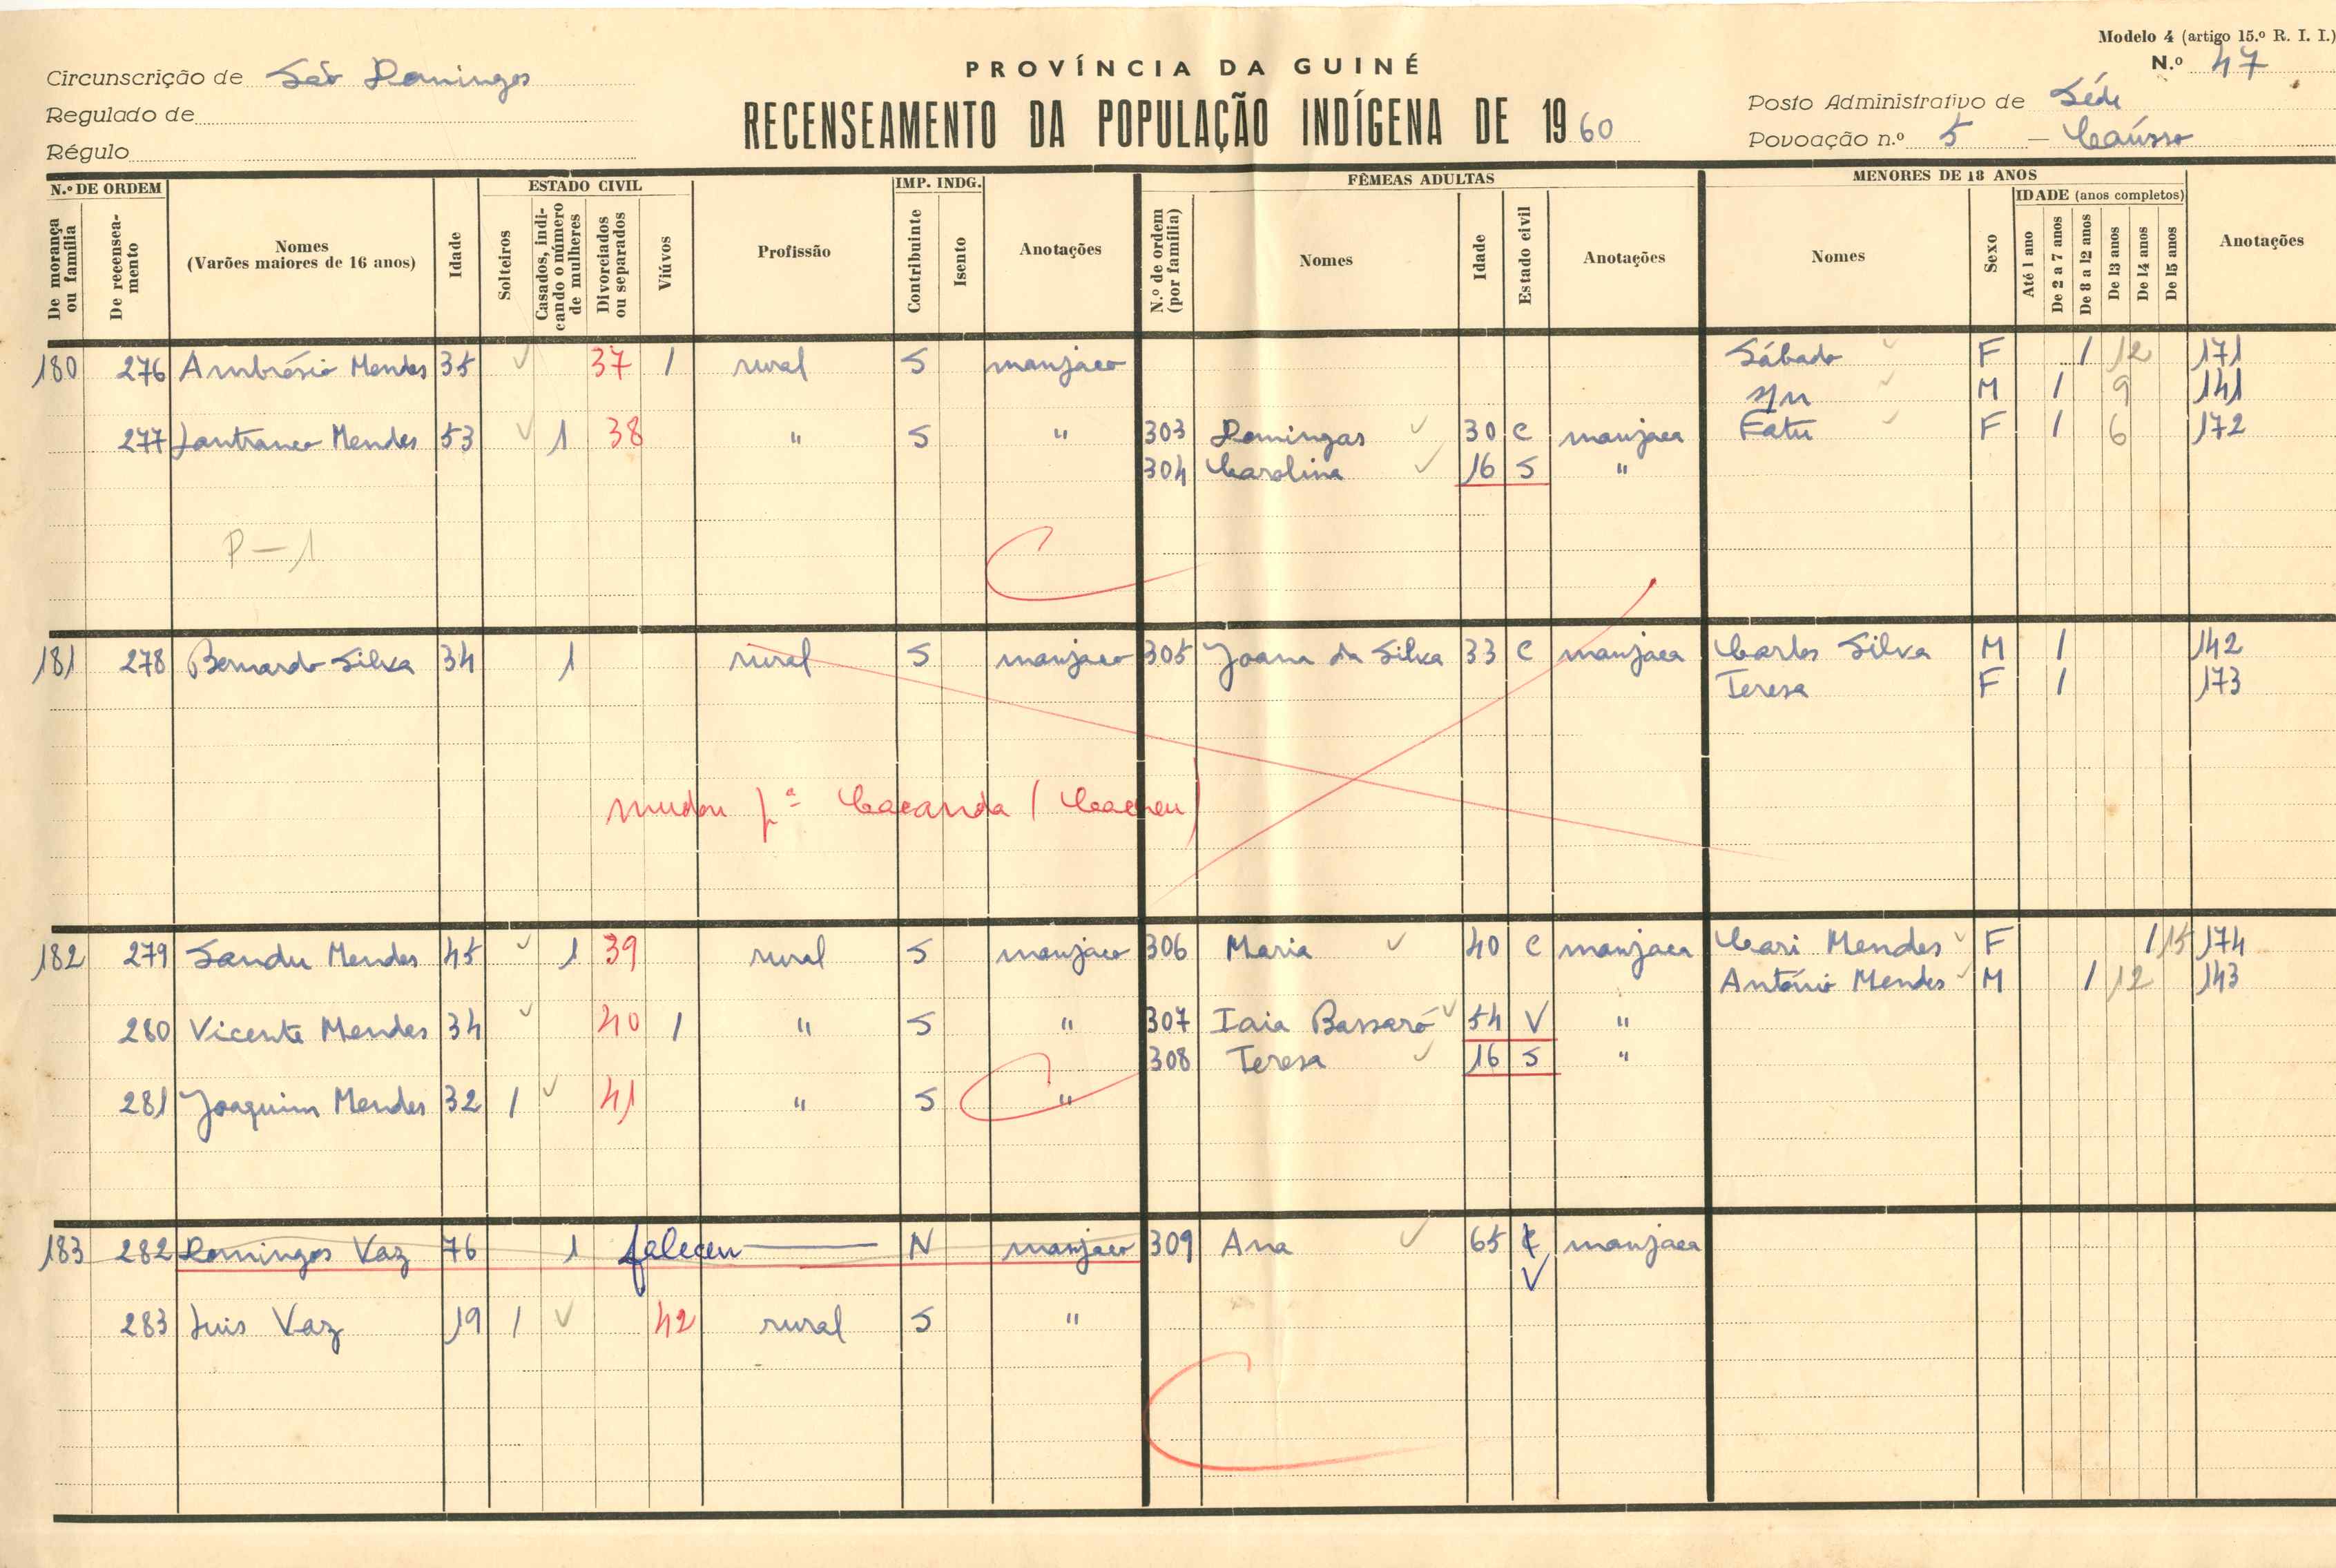 Modelo 4 (artigo 15.º R. I. I.)
N.º 47
PROVÍNCIA DA GUINÉ
RECENSEAMENTO DA POPULAÇÃO INDÍGENA DE 1960
Circunscrição de São Domingos
Regulado de
Régulo
Posto Administrativo de Séde
Povoação n.º 5 — Caússo
N.º DE ORDEM
De morança ou família
De recenseamento
Nomes
(Varões maiores de 16 anos)
Idade
ESTADO CIVIL
Solteiros
Casados, indicando o número de mulheres
Divorciados ou separados
Viúvos
Profissão
IMP. INDG.
Contribuinte
Isento
Anotações
FÊMEAS ADULTAS
N.º de ordem (por família)
Nomes
Idade
Estado civil
Anotações
MENORES DE 18 ANOS
Nomes
Sexo
IDADE (anos completos)
Até 1 ano
De 2 a 7 anos
De 8 a 12 anos
De 13 anos
De 14 anos
De 15 anos
Anotações
180 276 Ambrósio Mendes 35 37 1 rural S manjaco Sábado F 1 12 171
M 1 9 141
277 Mendes 53 1 38 " S " 303 Domingas 30 C manjaca Fatu F 1 6 172
304 Carolina 16 S "
P — 1
181 278 Bernardo Silva 34 1 rural S manjaco 305 Joana da Silva 33 C manjaca Carlos Silva M 1 142
Teresa F 1 173
mudou p.ª Cacanda (Cacheu)
182 279 Sandu Mendes 45 1 39 rural S manjaco 306 Maria 40 C manjaca Cari Mendes F 1 15 174
António Mendes M 1 12 143
280 Vicente Mendes 34 40 1 " S " 307 Iaia Bassaró 54 V "
308 Teresa 16 S "
281 Joaquim Mendes 32 1 41 " S "
183 282 Domingos Vaz 76 1 faleceu N manjaco 309 Ana 65 C manjaca
V
283 Luis Vaz 19 1 42 rural S "